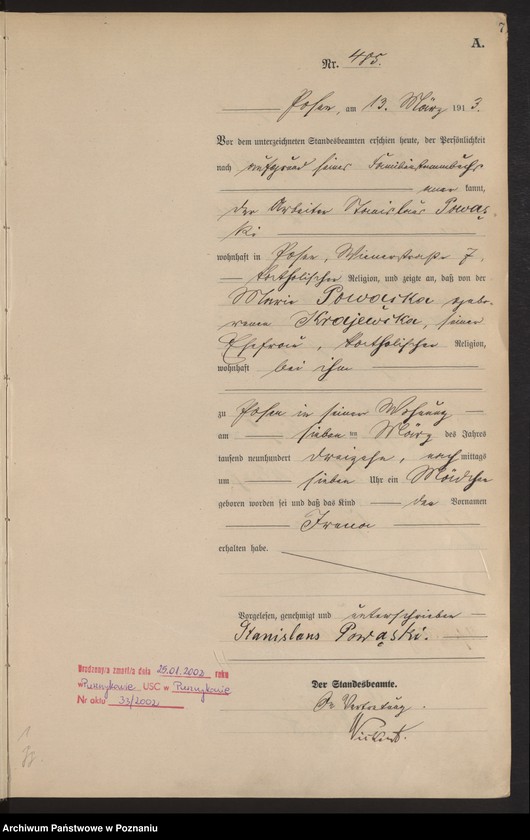 7
A.
Nr. 405.
Posen, am 13. März 1913.
Vor dem unterzeichneten Standesbeamten erschien heute, der Persönlichkeit
nach aufgrund seines Familienstammbuchs
kannt,
der Arbeiter Stanislaus Powąs-
ki
wohnhaft in Posen, Wienerstraße 7,
katholischer Religion, und zeigte an, daß von der
Maria Powąska gebo-
renen Krajewska, seiner
Ehefrau, katholischer Religion,
wohnhaft bei ihm
zu Posen in seiner Wohnung
am sieben ten März des Jahres
tausend neunhundert dreizehn, nach mittags
um sieben Uhr ein Mädchen
geboren worden sei und daß das Kind den Vornamen
Irena
erhalten habe.
Vorgelesen, genehmigt und unterschrieben
Stanislaus Powąski.
Der Standesbeamte.
In Vertretung.
Urodzony/a zmarł/a dnia 25.01.2002 roku
w Puszczykowie USC w Puszczykowie
Nr aktu 33/2002
Archiwum Państwowe w Poznaniu